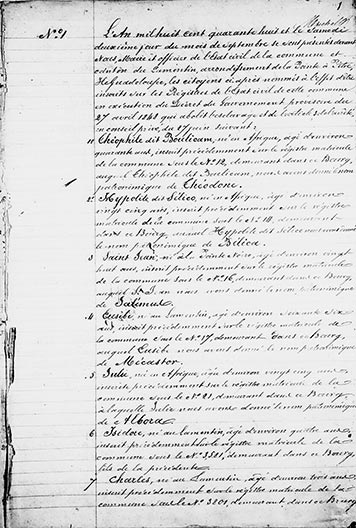 1
N° 1
L'An mil huit cent quarante huit et le Samedi
deuxième jour du mois de Septembre se sont présentés devant
Nous Maire et officier de l'Etat civil de la commune et
canton du Lamentin, arrondissement de la Pointe à Pitre
Guadeloupe, les citoyens ci après nommés à l'effet d'être
inscrits sur les Registres de l'Etat civil de cette commune
en exécution du Décret du Gouvernement provisoire du
27 avril 1848 qui abolit l'esclavage et de l'arrêté
en conseil privé, du 17 juin suivant;
1° Théophile dit Boulicam, né en Afrique, âgé d'environ
quarante ans, inscrit précédemment sur le régistre matricule
de la commune sous le N° 12, demeurant dans ce Bourg,
auquel Théophile dit Boulicam, nous avons donné le nom
patronimique de Théodone.
2° Hyppolite dit Silico, né en Afrique, âgé d'environ
vingt cinq ans, inscrit précédemment sur le régistre
matricule de la commune sous le N° 14, demeurant
dans ce Bourg, auquel Hyppolite dit Silico nous avons donné
le nom patronimique de Bélica.
3 Saint Jean, né à la Pointe Noire, âgé d'environ vingt
huit ans, inscrit précédemment sur le régistre matricule
de la commune sous le N° 16, demeurant dans ce Bourg
auquel St J. an nous avons donné le nom patronimique
de
4 Eusèbe, né au Lamentin, âgé d'environ soixante six
ans, inscrit précédemment sur le régistre matricule de
la commune sous le N° 17, demeurant dans ce Bourg,
auquel Eusèbe nous avons donné le nom patronimique
de Mécastor.
5 Julie, née en Afrique, âgée d'environ vingt cinq ans
inscrite précédemment sur le régistre matricule de la
commune sous le N° 21, demeurant dans ce Bourg
à laquelle Julie nous avons donné le nom patronimique
de Albora
6 Isidore, né au Lamentin, âgé d'environ quatre ans
inscrit précédemment sur le régistre matricule de la
commune sous le N° 3581, demeurant dans ce Bourg,
fils de la précédente
7 Charles, né au Lamentin, âgé d'environ trois ans
inscrit précédemment sur le régistre matricule de la
commune sous le N° 3801, demeurant dans ce Bourg